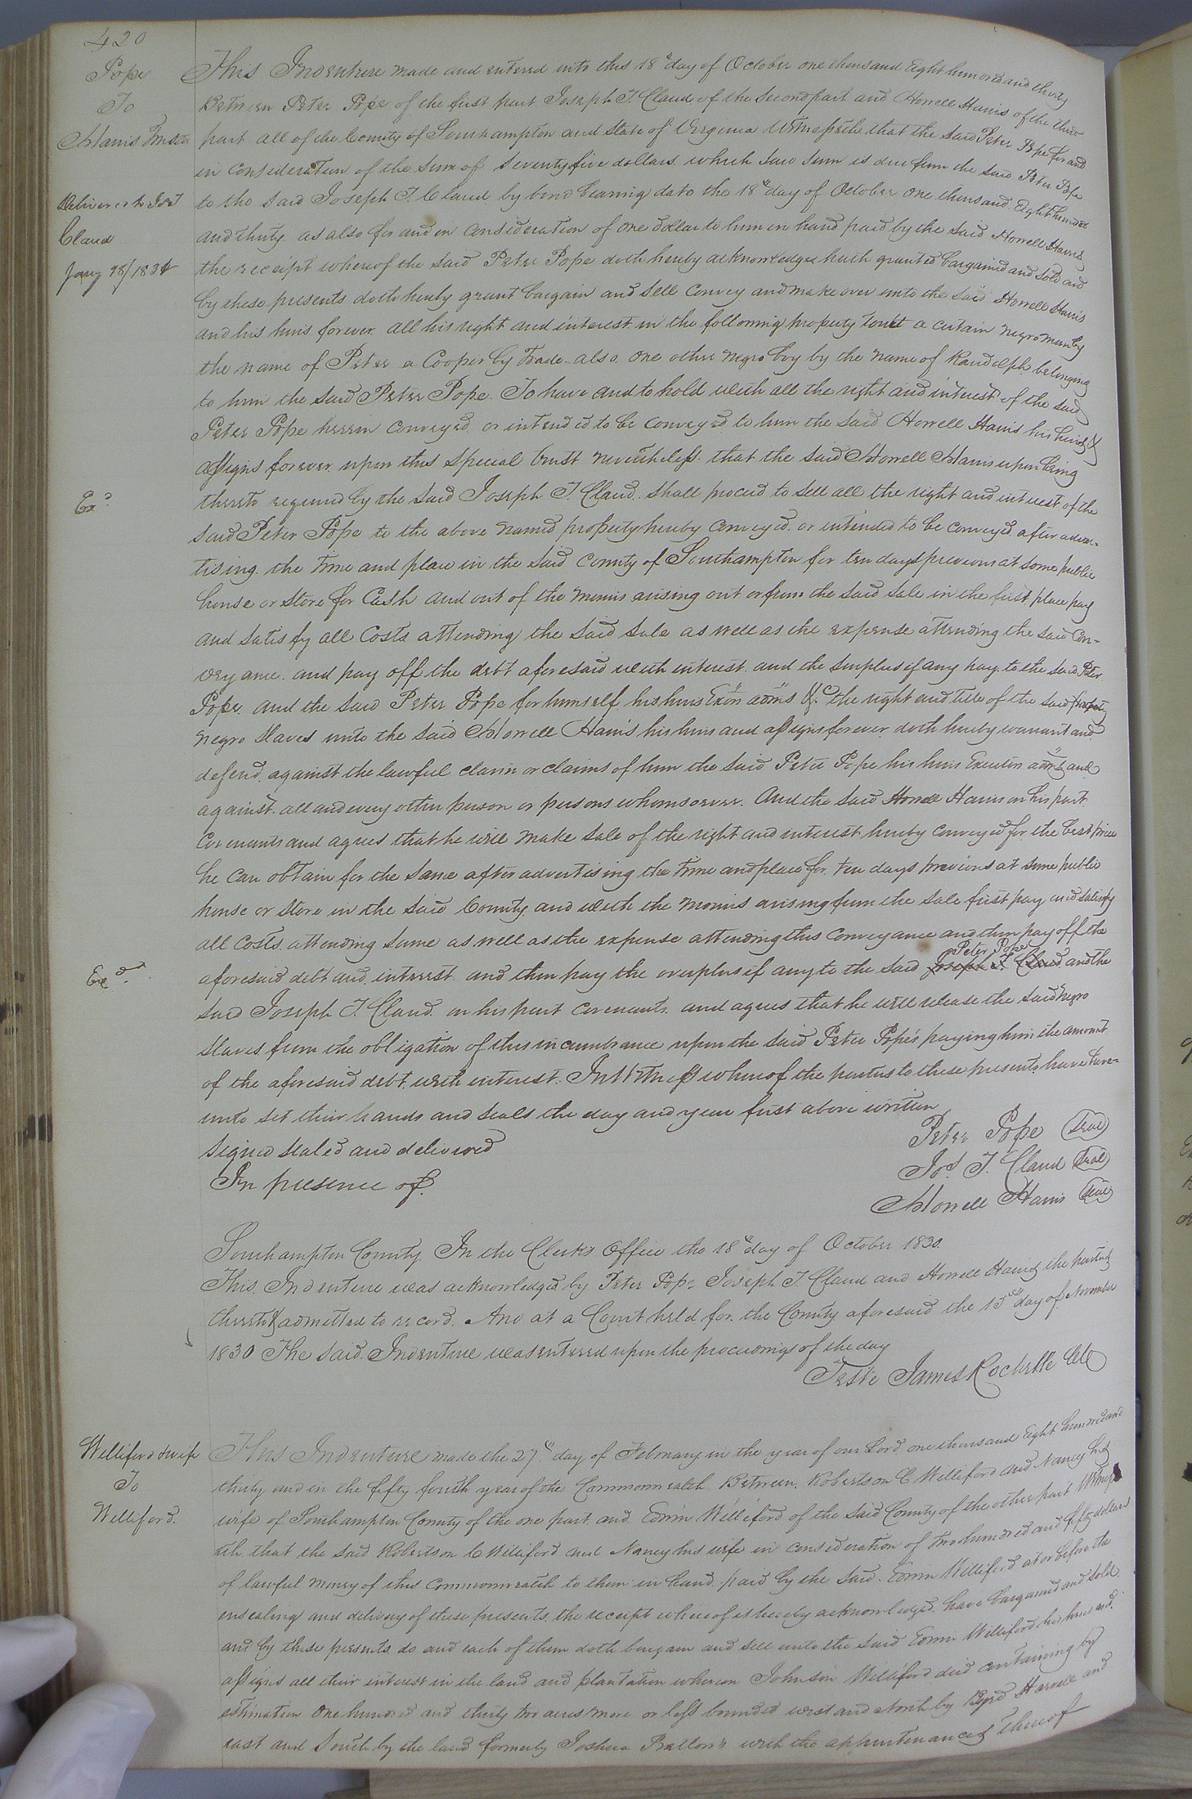 420
Pope
To
Harris Trustee
Delivered to Jos T
Claud
Jany 28/1834
Exd
Exd
This Indenture made and entered into this 18th day of October one thousand Eight hundred and thirty
Between Peter Pope of the first part Joseph T. Claud of the Second part and Howell Harris of the third
part all of the County of Southampton and State of Virginia Witnesseth that the said Peter Pope for and
in consideration of the sum of Seventy five dollars which said sum is due from the said Peter Pope
to the said Joseph T. Claud by bond bearing date the 18th day of October one thousand Eight hundred
and thirty as also for and in consideration of one dollar to him in hand paid by the said Howell Harris
the receipt whereof the said Peter Pope doth hereby acknowledges hath granted bargained and sold and
by these presents doth hereby grant bargain and sell convey and make over unto the said Howell Harris
and his heirs forever all his right and interest in the following property towit a certain negro man by
the name of Peter a Cooper by Trade also one other negro boy by the name of Randolph belonging
to him the said Peter Pope. To have and to hold with all the right and interest of the said
Peter Pope herein conveyed or intended to be conveyed to him the said Howell Harris his heirs &
assigns forever upon this special trust nevertheless that the said Howell Harris upon being
thereto required by the said Joseph T. Claud shall proceed to sell all the right and interest of the
said Peter Pope to the above named property hereby conveyed or intended to be conveyed after adver-
tising the time and place in the said County of Southampton for ten days previous at some public
house or store for Cash and out of the monies arising out or from the said sale in the first place pay
and satisfy all Costs attending the said sale as well as the expense attending the said Con-
veyance and pay off the debt aforesaid with interest and the surplus if any pay to the said Peter
Pope. and the said Peter Pope for himself his heirs Exors adms &c the right and title of the said
negro slaves unto the said Howell Harris his heirs and assigns forever doth hereby warrant and
defend against the lawful claim or claims of him the said Peter Pope his heirs Executors adms and
against all and every other person or persons whomsoever. And the said Howell Harris on his part
Covenants and agrees that he will make sale of the right and interest hereby conveyed for the best price
he can obtain for the same after advertising the time and place for ten days previous at some public
house or store in the said County and with the monies arising from the sale first pay and satisfy
all costs attending same as well as the expense attending this conveyance and then pay off the
aforesaid debt and interest and then pay the overplus if any to the said Joseph T. Claud Peter Pope and the
said Joseph T. Claud on his part covenants and agrees that he will release the said negro
slaves from the obligation of this incumbrance upon the said Peter Pope's paying him the amount
of the aforesaid debt with interest. In Witness whereof the parties to these presents have here-
unto set their hands and seals the day and year first above written
Signed sealed and delivered
In presence of
Peter Pope Seal
Jos. T. Claud Seal
Howell Harris Seal
Southampton County. In the Clerks Office the 18th day of October 1830.
This Indenture was acknowledged by Peter Pope Joseph T Claud and Howell Harris the parties
thereto & admitted to record. And at a Court held for the County aforesaid the 15th day of November
1830 The said Indenture was entered upon the proceedings of the day
Teste James Rochelle Clk
Williford & wife
To
Williford.
This Indenture made the 27th day of February in the year of our Lord one thousand Eight hundred and
thirty and in the fifty fourth year of the Commonwealth Between Robertson C Williford and Nancy his
wife of Southampton County of the one part and Edwin Williford of the said County of the other part Witness-
eth that the said Robertson C Williford and Nancy his wife in consideration of two hundred and fifty dollars
of lawful money of this commonwealth to them in hand paid by the said Edwin Williford at or before the
ensealing and delivery of these presents the receipt whereof is hereby acknowledged have bargained and sold
and by these presents do and each of them doth bargain and sell unto the said Edwin Williford his heirs and
assigns all their interest in the land and plantation whereon Johnson Williford died containing by
estimation one hundred and thirty two acres more or less bounded west and North by Byrd Harvell and
east and South by the land formerly Joshua Bratton's with the appurtenances thereof